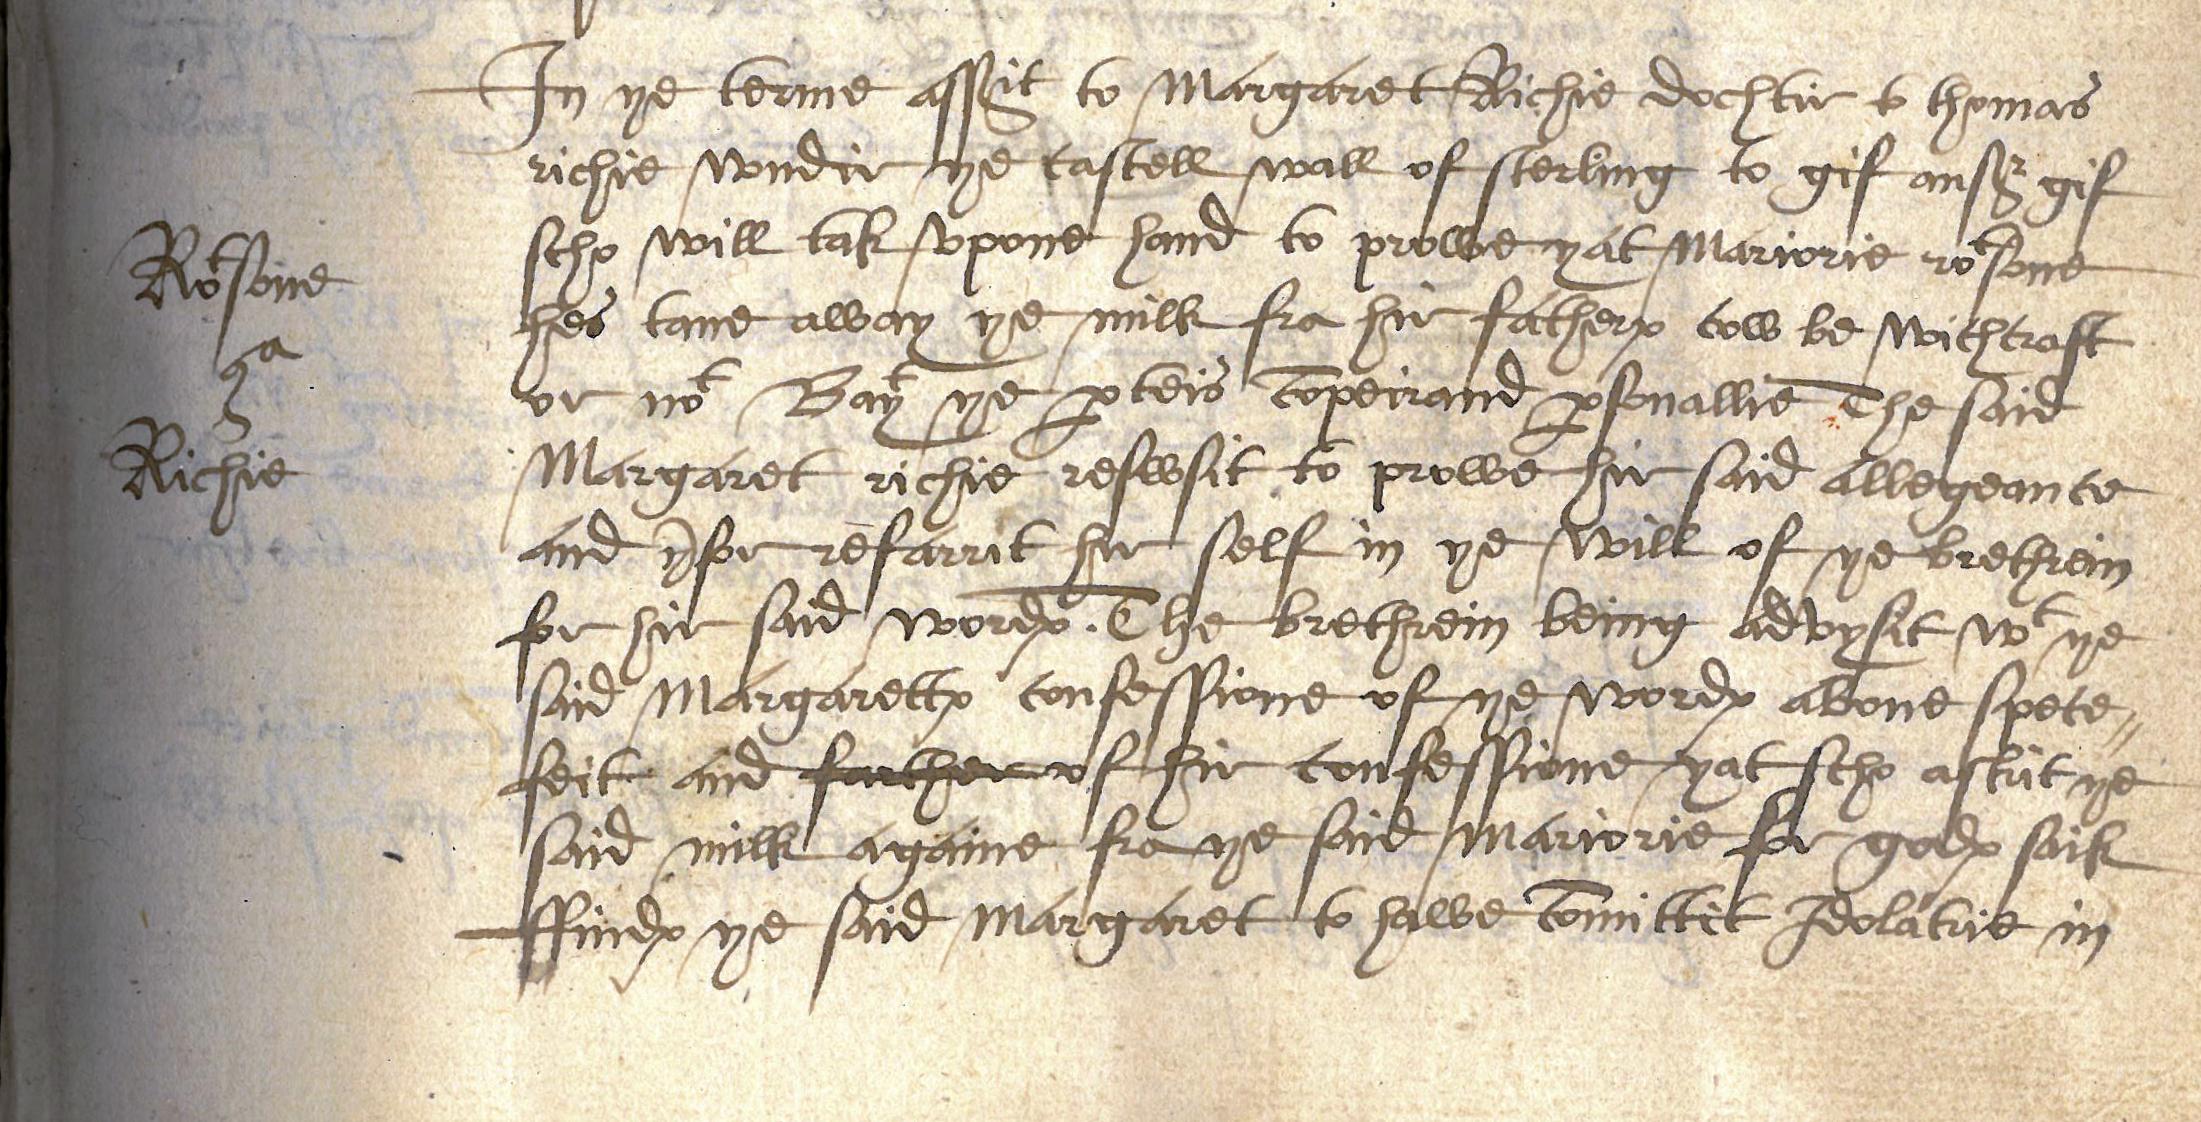 In ye terme assit to Margaret Richie dochtir to thomas
richie wndir ye castell wall of sterling to gif ansr gif
scho will tak vpone hand to prowe yat Mariorie rotsone
hes tane away ye milk fra hir fatheris cow be witchcraft
or not Bayt ye pteis compeirand psonallie The said
Margaret richie refwsit to prowe hir said allegeance
and yfor refarrit hir self in ye will of ye brethrein
for hir said wordis. The brethrein being advysit wt ye
said Margarettis confessione of ye wordis abone spece〃
feit and farther of hir confessione yat scho askit ye
said milk againe fra ye said Mariorie for godis saik
ffindis ye said Margaret to hawe committit Idolatrie in
Rotsone
9a
Richie